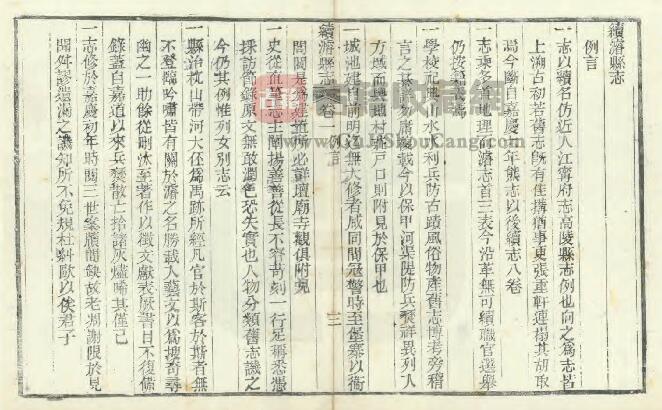 續濬縣志
例言
一志以續名仿近人江寧府志高陵縣志例也向之為志皆
上溯古初若舊志既有佳搆猶事更張重軒連搨其胡取
焉今斷自嘉慶 年熊志以後續志八卷
一志乘多首地理而濬志首三表今沿革無可續職官選舉
仍按
一學校祀典山水水利兵防古蹟風俗物產舊志博考旁稽
言之 載今以保甲河渠隄防兵燹祥異列入
方域而輿地村 戶口則附見於保甲也
一城池建自前明近無大修者咸同間寇警時至堡寨以衛
續濬縣志 卷一 例言 三
閭閻是為建置所必詳壇廟寺觀俱附見
一史從直筆志主闡揚善善從長不齊苛刻一行足稱悉憑
採訪節錄原文無敢潤色恐失實也人物分類舊志譏之
今仍其例惟列女別志云
一縣治枕山帶河大伾為禹跡所經凡官於斯客於斯者無
不登臨吟嘯皆有關於濬之名勝載入藝文以為搜奇尋
幽之一助餘從刪汰至著作以徵文獻表厥書目不復備
錄蓋自嘉道以來兵燹散亡拾諸灰燼唏其僅已
一志修於嘉慶初年時閱三世案牘間缺故老凋謝限於見
聞舛謬遺漏之譏知所不免規杜糾歐以俟君子